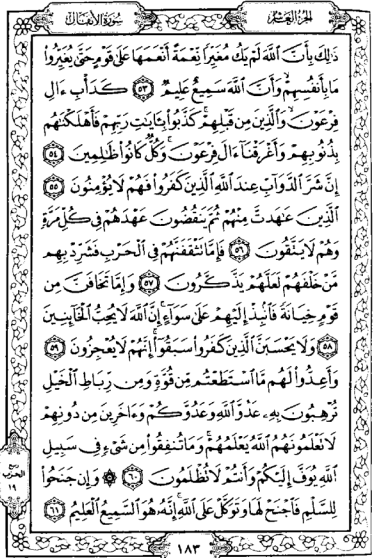 الجزء العاشر
سورة الأنفال
ذَٰلِكَ بِأَنَّ ٱللَّهَ لَمْ يَكُ مُغَيِّرًا نِّعْمَةً أَنْعَمَهَا عَلَىٰ قَوْمٍ حَتَّىٰ يُغَيِّرُوا۟
مَا بِأَنفُسِهِمْ وَأَنَّ ٱللَّهَ سَمِيعٌ عَلِيمٌ ٥٣ كَدَأْبِ ءَالِ
فِرْعَوْنَ وَٱلَّذِينَ مِن قَبْلِهِمْ كَذَّبُوا۟ بِـَٔايَٰتِ رَبِّهِمْ فَأَهْلَكْنَٰهُم
بِذُنُوبِهِمْ وَأَغْرَقْنَآ ءَالَ فِرْعَوْنَ وَكُلٌّ كَانُوا۟ ظَٰلِمِينَ ٥٤
إِنَّ شَرَّ ٱلدَّوَآبِّ عِندَ ٱللَّهِ ٱلَّذِينَ كَفَرُوا۟ فَهُمْ لَا يُؤْمِنُونَ ٥٥
ٱلَّذِينَ عَٰهَدتَّ مِنْهُمْ ثُمَّ يَنقُضُونَ عَهْدَهُمْ فِى كُلِّ مَرَّةٍ
وَهُمْ لَا يَتَّقُونَ ٥٦ فَإِمَّا تَثْقَفَنَّهُمْ فِى ٱلْحَرْبِ فَشَرِّدْ بِهِم
مَّنْ خَلْفَهُمْ لَعَلَّهُمْ يَذَّكَّرُونَ ٥٧ وَإِمَّا تَخَافَنَّ مِن
قَوْمٍ خِيَانَةً فَٱنۢبِذْ إِلَيْهِمْ عَلَىٰ سَوَآءٍ إِنَّ ٱللَّهَ لَا يُحِبُّ ٱلْخَآئِنِينَ
٥٨ وَلَا يَحْسَبَنَّ ٱلَّذِينَ كَفَرُوا۟ سَبَقُوٓا۟ إِنَّهُمْ لَا يُعْجِزُونَ ٥٩
وَأَعِدُّوا۟ لَهُم مَّا ٱسْتَطَعْتُم مِّن قُوَّةٍ وَمِن رِّبَاطِ ٱلْخَيْلِ
تُرْهِبُونَ بِهِۦ عَدُوَّ ٱللَّهِ وَعَدُوَّكُمْ وَءَاخَرِينَ مِن دُونِهِمْ
لَا تَعْلَمُونَهُمُ ٱللَّهُ يَعْلَمُهُمْ وَمَا تُنفِقُوا۟ مِن شَىْءٍ فِى سَبِيلِ
ٱللَّهِ يُوَفَّ إِلَيْكُمْ وَأَنتُمْ لَا تُظْلَمُونَ ٦٠ ۞ وَإِن جَنَحُوا۟
لِلسَّلْمِ فَٱجْنَحْ لَهَا وَتَوَكَّلْ عَلَى ٱللَّهِ إِنَّهُۥ هُوَ ٱلسَّمِيعُ ٱلْعَلِيمُ ٦١
ربع
الحزب
١٩
١٨٣